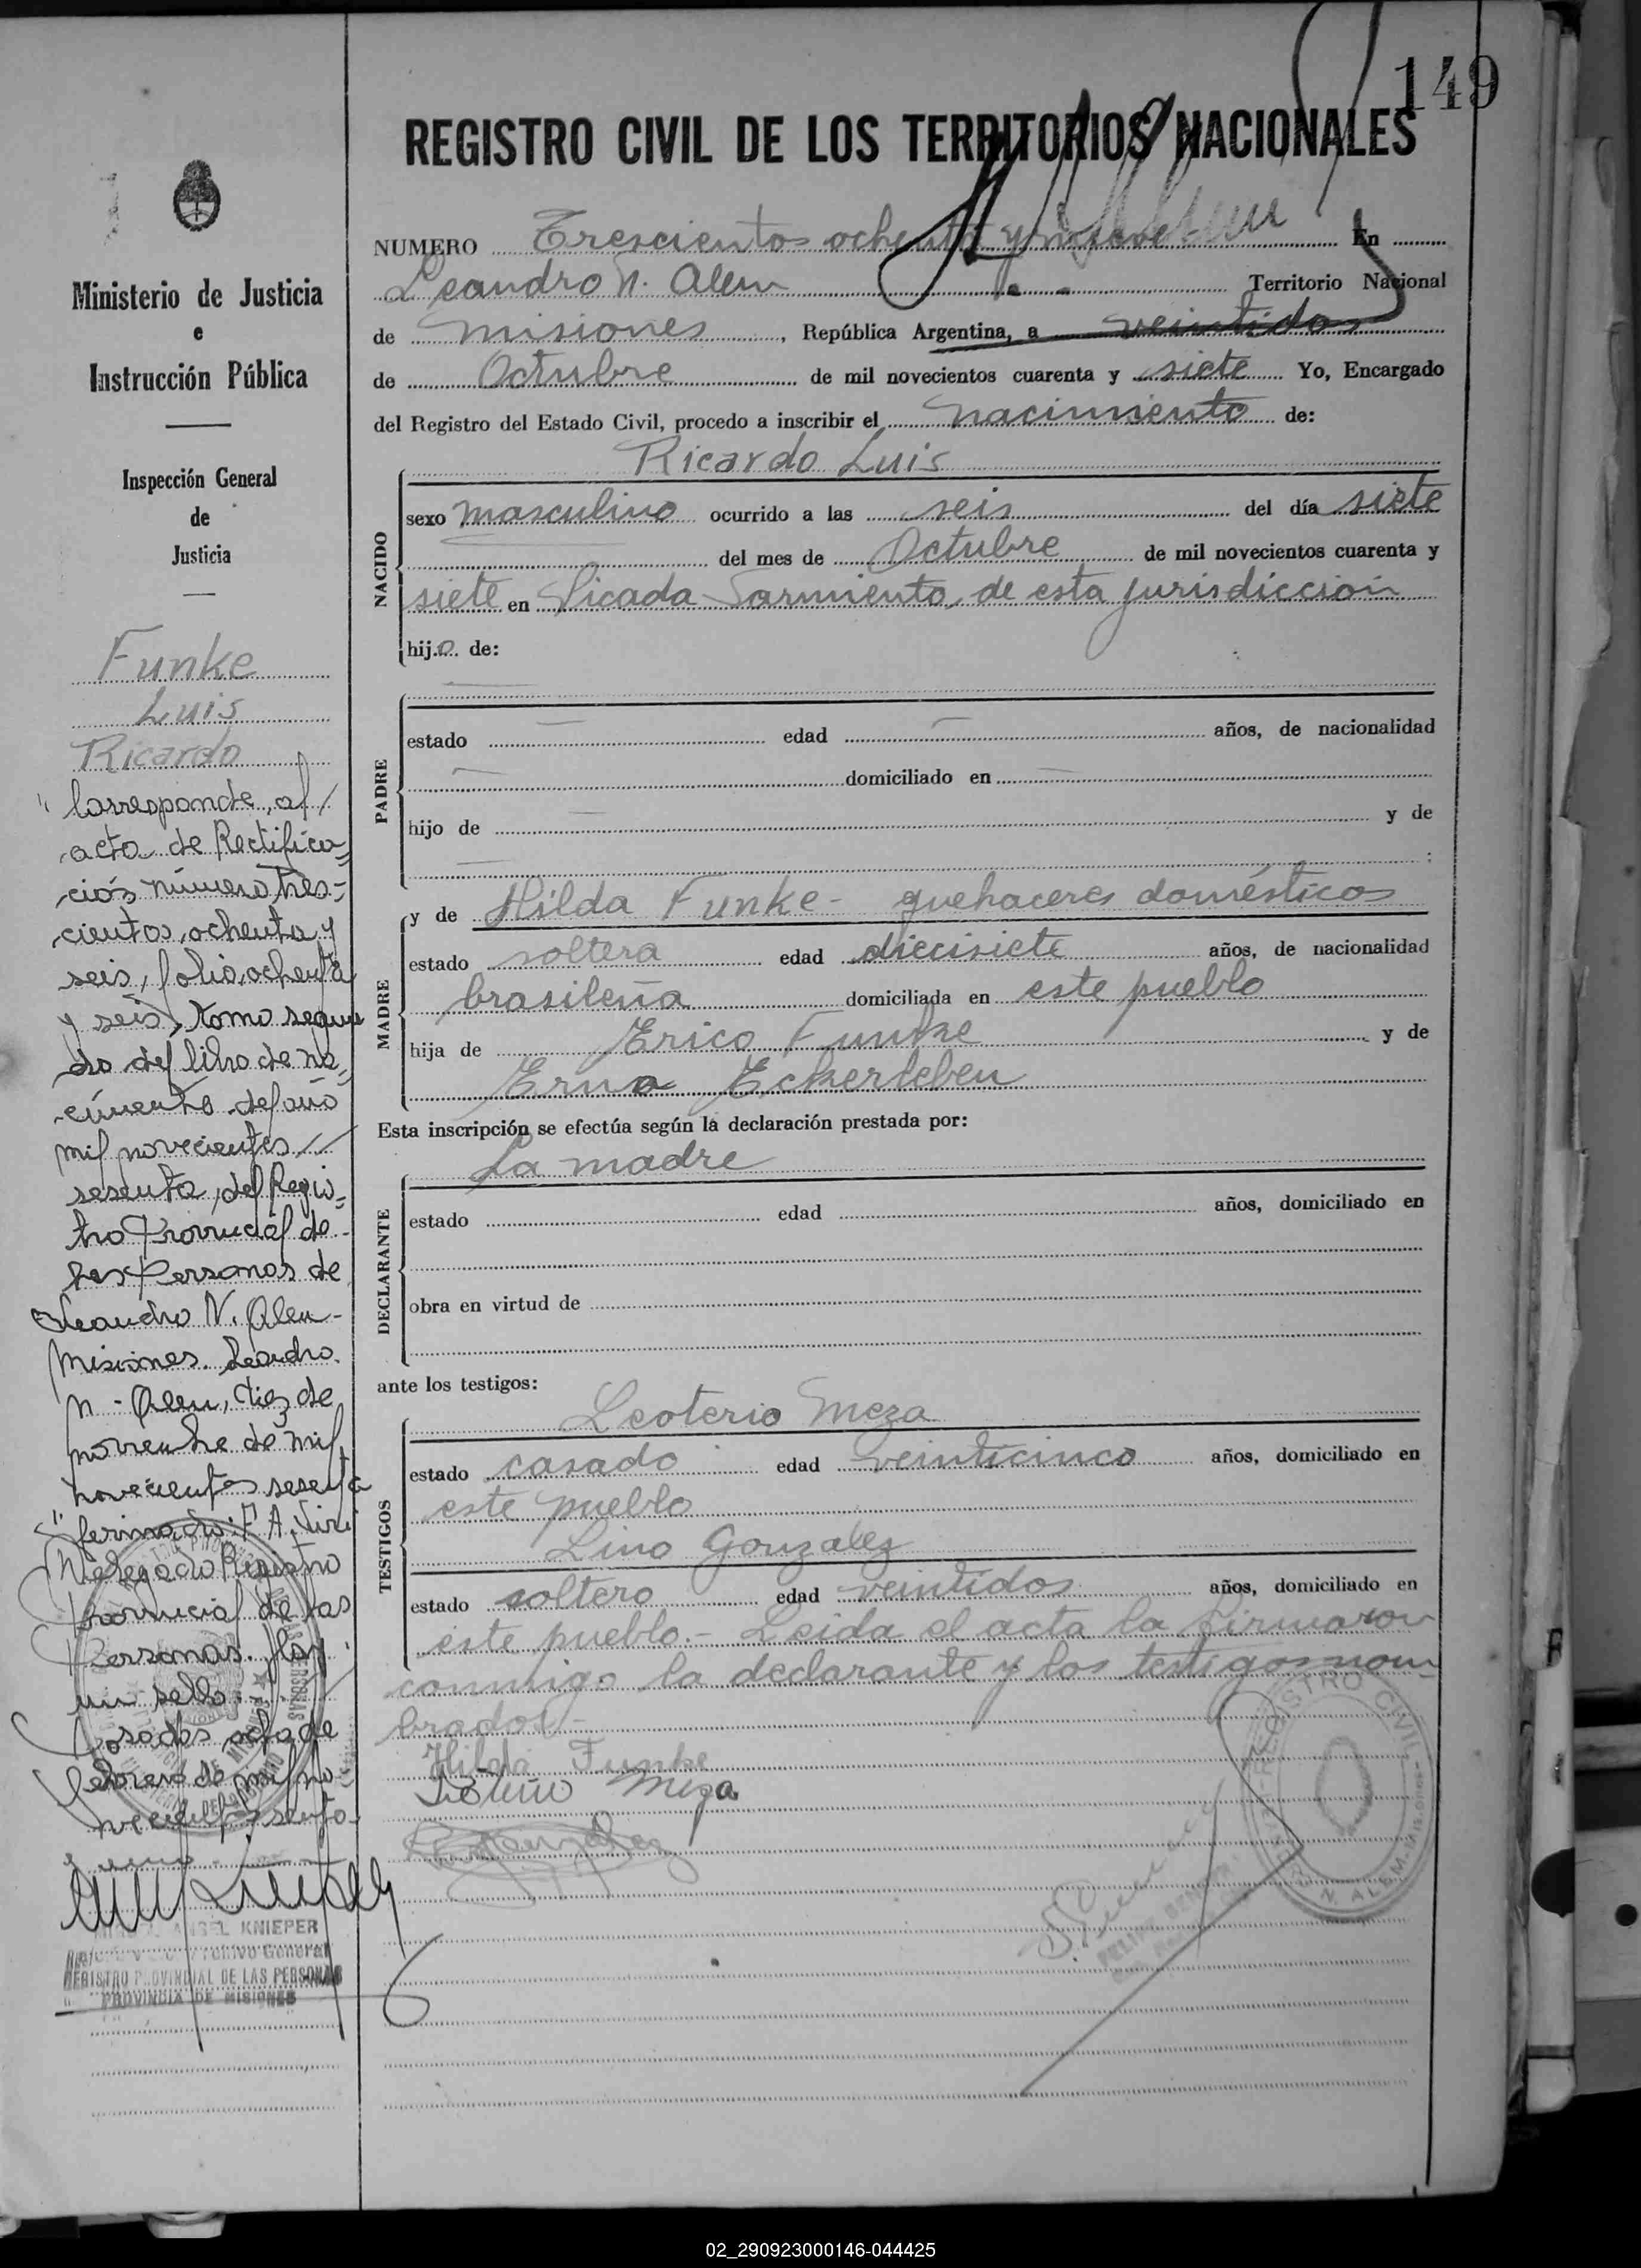 149
REGISTRO CIVIL DE LOS TERRITORIOS NACIONALES
NUMERO Trescientos ochenta y nueve En
Leandro N. Alem Territorio Nacional
de Misiones, República Argentina, a veintidos
de Octubre de mil novecientos cuarenta y siete Yo, Encargado
del Registro del Estado Civil, procedo a inscribir el nacimiento de:
Ricardo Luis
NACIDO
sexo masculino ocurrido a las seis del día siete
del mes de Octubre de mil novecientos cuarenta y
siete en Picada Sarmiento, de esta jurisdiccion
hijo de:
PADRE
estado edad años, de nacionalidad
domiciliado en
hijo de y de
MADRE
y de Hilda Funke - quehaceres domésticos
estado soltera edad diecisiete años, de nacionalidad
brasileña domiciliada en este pueblo
hija de Erico Funke y de
Erna Eckerleben
Esta inscripción se efectúa según la declaración prestada por:
La madre
DECLARANTE
estado edad años, domiciliado en
obra en virtud de
ante los testigos:
TESTIGOS
Leoterio Meza
estado casado edad veinticinco años, domiciliado en
este pueblo
Lino Gonzalez
estado soltero edad veintidos años, domiciliado en
este pueblo.- Leida el acta la firmaron
conmigo la declarante y los testigos nom
brados.-
Hilda Funke
Meza
REGISTRO CIVIL
N. ALEM
Ministerio de Justicia
e
Instrucción Pública
Inspección General
de
Justicia
Funke
Luis
Ricardo
"Corresponde al
acta de Rectifica
ción número tres-
cientos ochenta y
seis, folio ochenta
y seis, tomo segun
do del libro de na
cimiento del año
mil novecientos
sesenta, del Regis-
tro Provincial de
las Personas de
Leandro N. Alem -
Misiones. Leandro
N - Alem, diez de
noviembre de mil
novecientos sesenta
firmado: F. A.
Delegado Registro
Provincial de las
Personas. Hay
un sello.-
Posadas ocho de
febrero de mil no
vecientos sesenta
y uno
ANGEL KNIEPER
Archivo General
REGISTRO PROVINCIAL DE LAS PERSONAS
PROVINCIA DE MISIONES
02_290923000146-044425